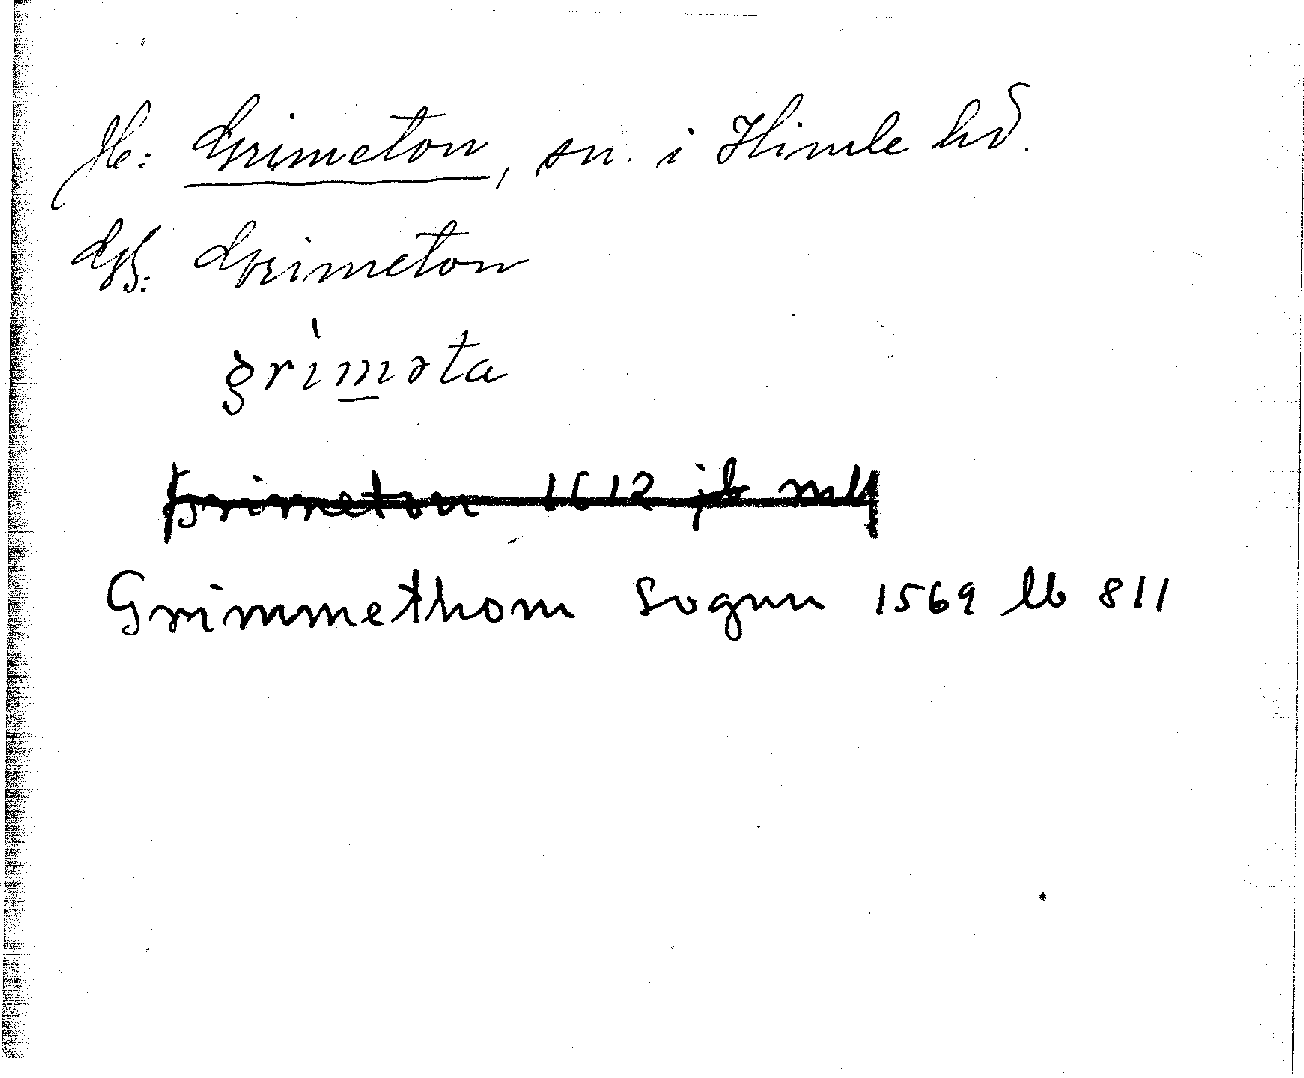 H: Grimeton, sn. i Himle hd.
GB: Grimeton
griməta
Grimeton 1612 jb
Grimmethom Sognn 1569 lb 811